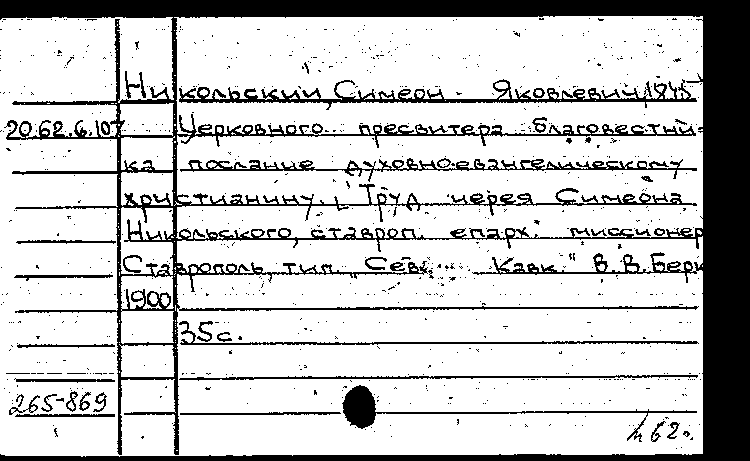 Никольский, Симеон Яковлевич, 1845
20.62.6.107
Церковного пресвитера благовестни-
ка послание духовно-евангелическому
христианину. Труд иерея Симеона
Никольского, ставроп. епарх. миссионер
Ставрополь, тип. „Сев. Кавк." В. В. Берк
1900
35 с.
265-869
62.